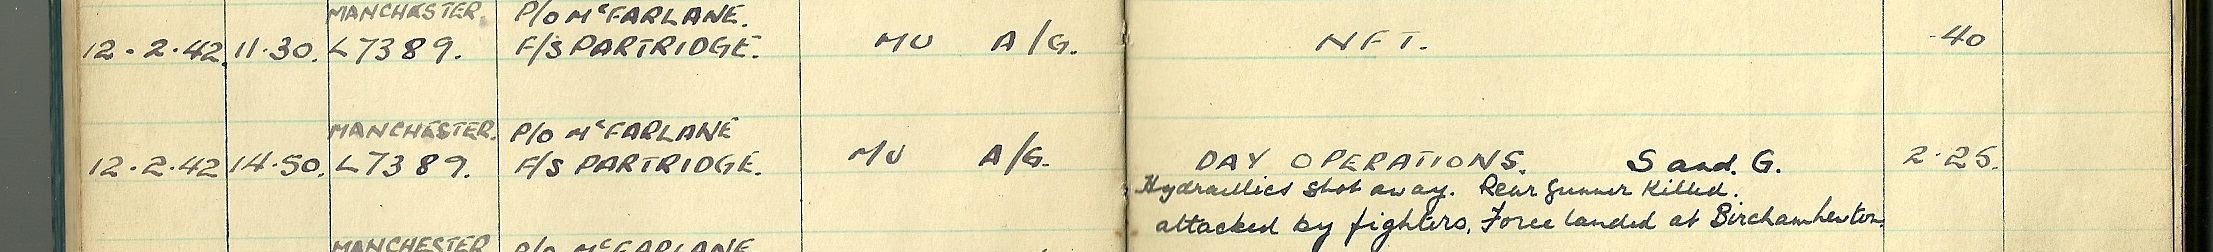 MANCHESTER. P/O McFARLANE.
12.2.42. 11.30. L7389. F/S PARTRIDGE. MU A/G. NFT. .40
MANCHESTER. P/O McFARLANE
12.2.42 14.50. L7389. F/S PARTRIDGE. MU A/G. DAY OPERATIONS. S and. G. 2.25.
Hydraulics shot away. Rear Gunner Killed.
attacked by fighters, Force landed at Birchamnewton.
MANCHESTER P/O McFARLANE